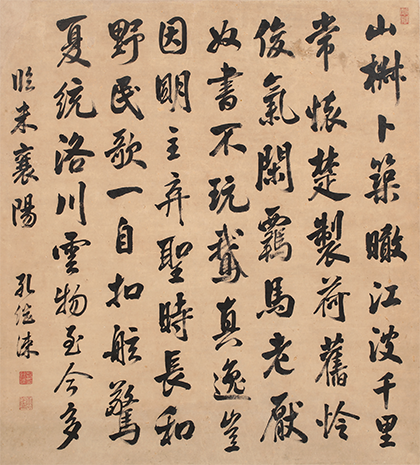 山椒卜築瞰江波千里
常懷楚製荷舊怜
俊氣閑羈馬老厭
奴書不玩鵝真逸豈
因明主弃聖時長和
野民歌一自扣舷驚
夏統洛川雲物至今多
臨米襄陽
孔繼涑